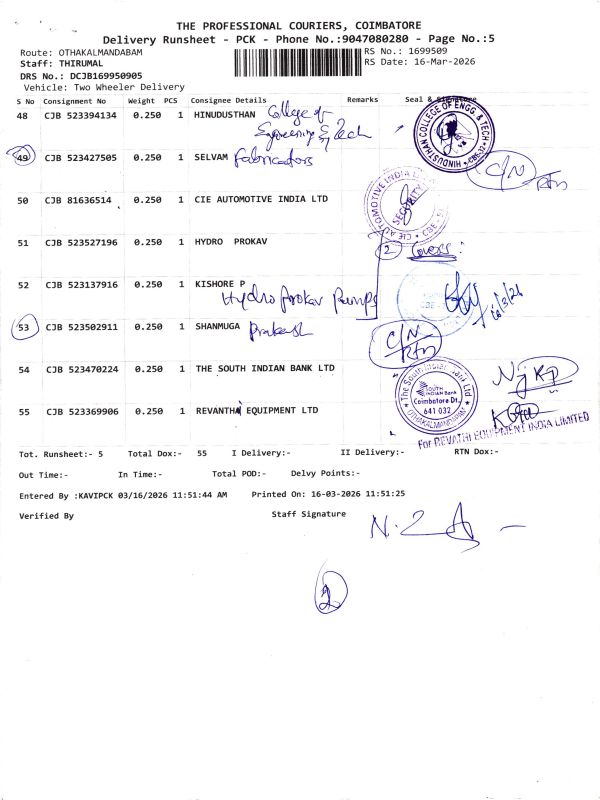 THE PROFESSIONAL COURIERS, COIMBATORE
Delivery Runsheet - PCK - Phone No.:9047080280 - Page No.:5
Route: OTHAKALMANDABAM
RS No.: 1699509
Staff: THIRUMAL
RS Date: 16-Mar-2026
DRS No.: DCJB169950905
Vehicle: Two Wheeler Delivery
S No Consignment No Weight PCS Consignee Details Remarks Seal & Signature
48 CJB 523394134 0.250 1 HINUDUSTHAN College of
Engineering & Tech
HINDUSTHAN COLLEGE OF ENGG. & TECH
49 CJB 523427505 0.250 1 SELVAM Fabricators
C/N
50 CJB 81636514 0.250 1 CIE AUTOMOTIVE INDIA LTD
SECURITY
51 CJB 523527196 0.250 1 HYDRO PROKAV
2 Covers
52 CJB 523137916 0.250 1 KISHORE P
Hydro Prokav Pumps
16/3/26
53 CJB 523502911 0.250 1 SHANMUGA Prakash
C/N
54 CJB 523470224 0.250 1 THE SOUTH INDIAN BANK LTD
The South Indian Bank Ltd
SOUTH INDIAN Bank
Coimbatore Dt.
641 032
OTHAKALMANDAPAM
55 CJB 523369906 0.250 1 REVANTHA EQUIPMENT LTD
For REVATHI EQUIPMENT INDIA LIMITED
Tot. Runsheet:- 5 Total Dox:- 55 I Delivery:- II Delivery:- RTN Dox:-
Out Time:- In Time:- Total POD:- Delvy Points:-
Entered By :KAVIPCK 03/16/2026 11:51:44 AM Printed On: 16-03-2026 11:51:25
Verified By Staff Signature
2